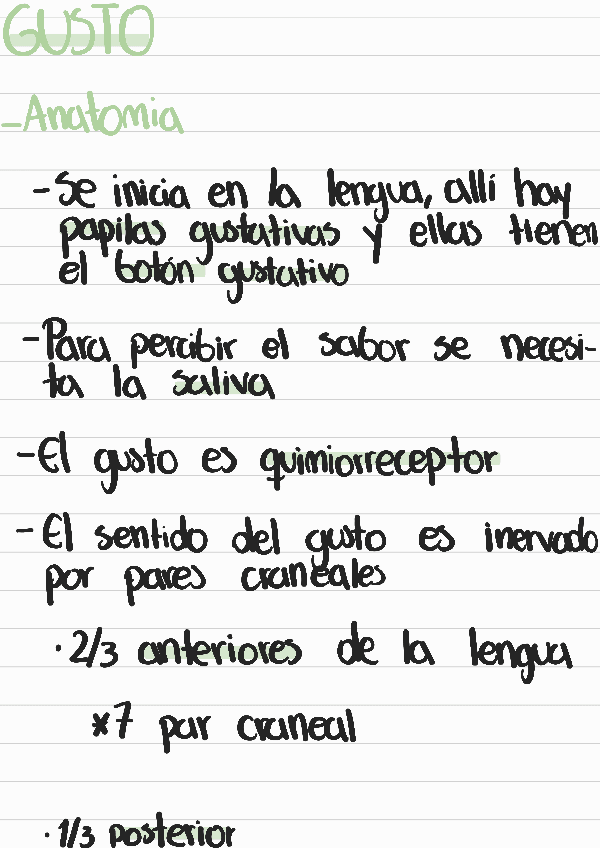 GUSTO
-Anatomia
-Se inicia en la lengua, allí hay
papilas gustativas y ellas tienen
el botón gustativo
-Para percibir el sabor se necesi-
ta la saliva
-El gusto es quimiorreceptor
-El sentido del gusto es inervado
por pares craneales
·2/3 anteriores de la lengua
*7 par craneal
·1/3 posterior